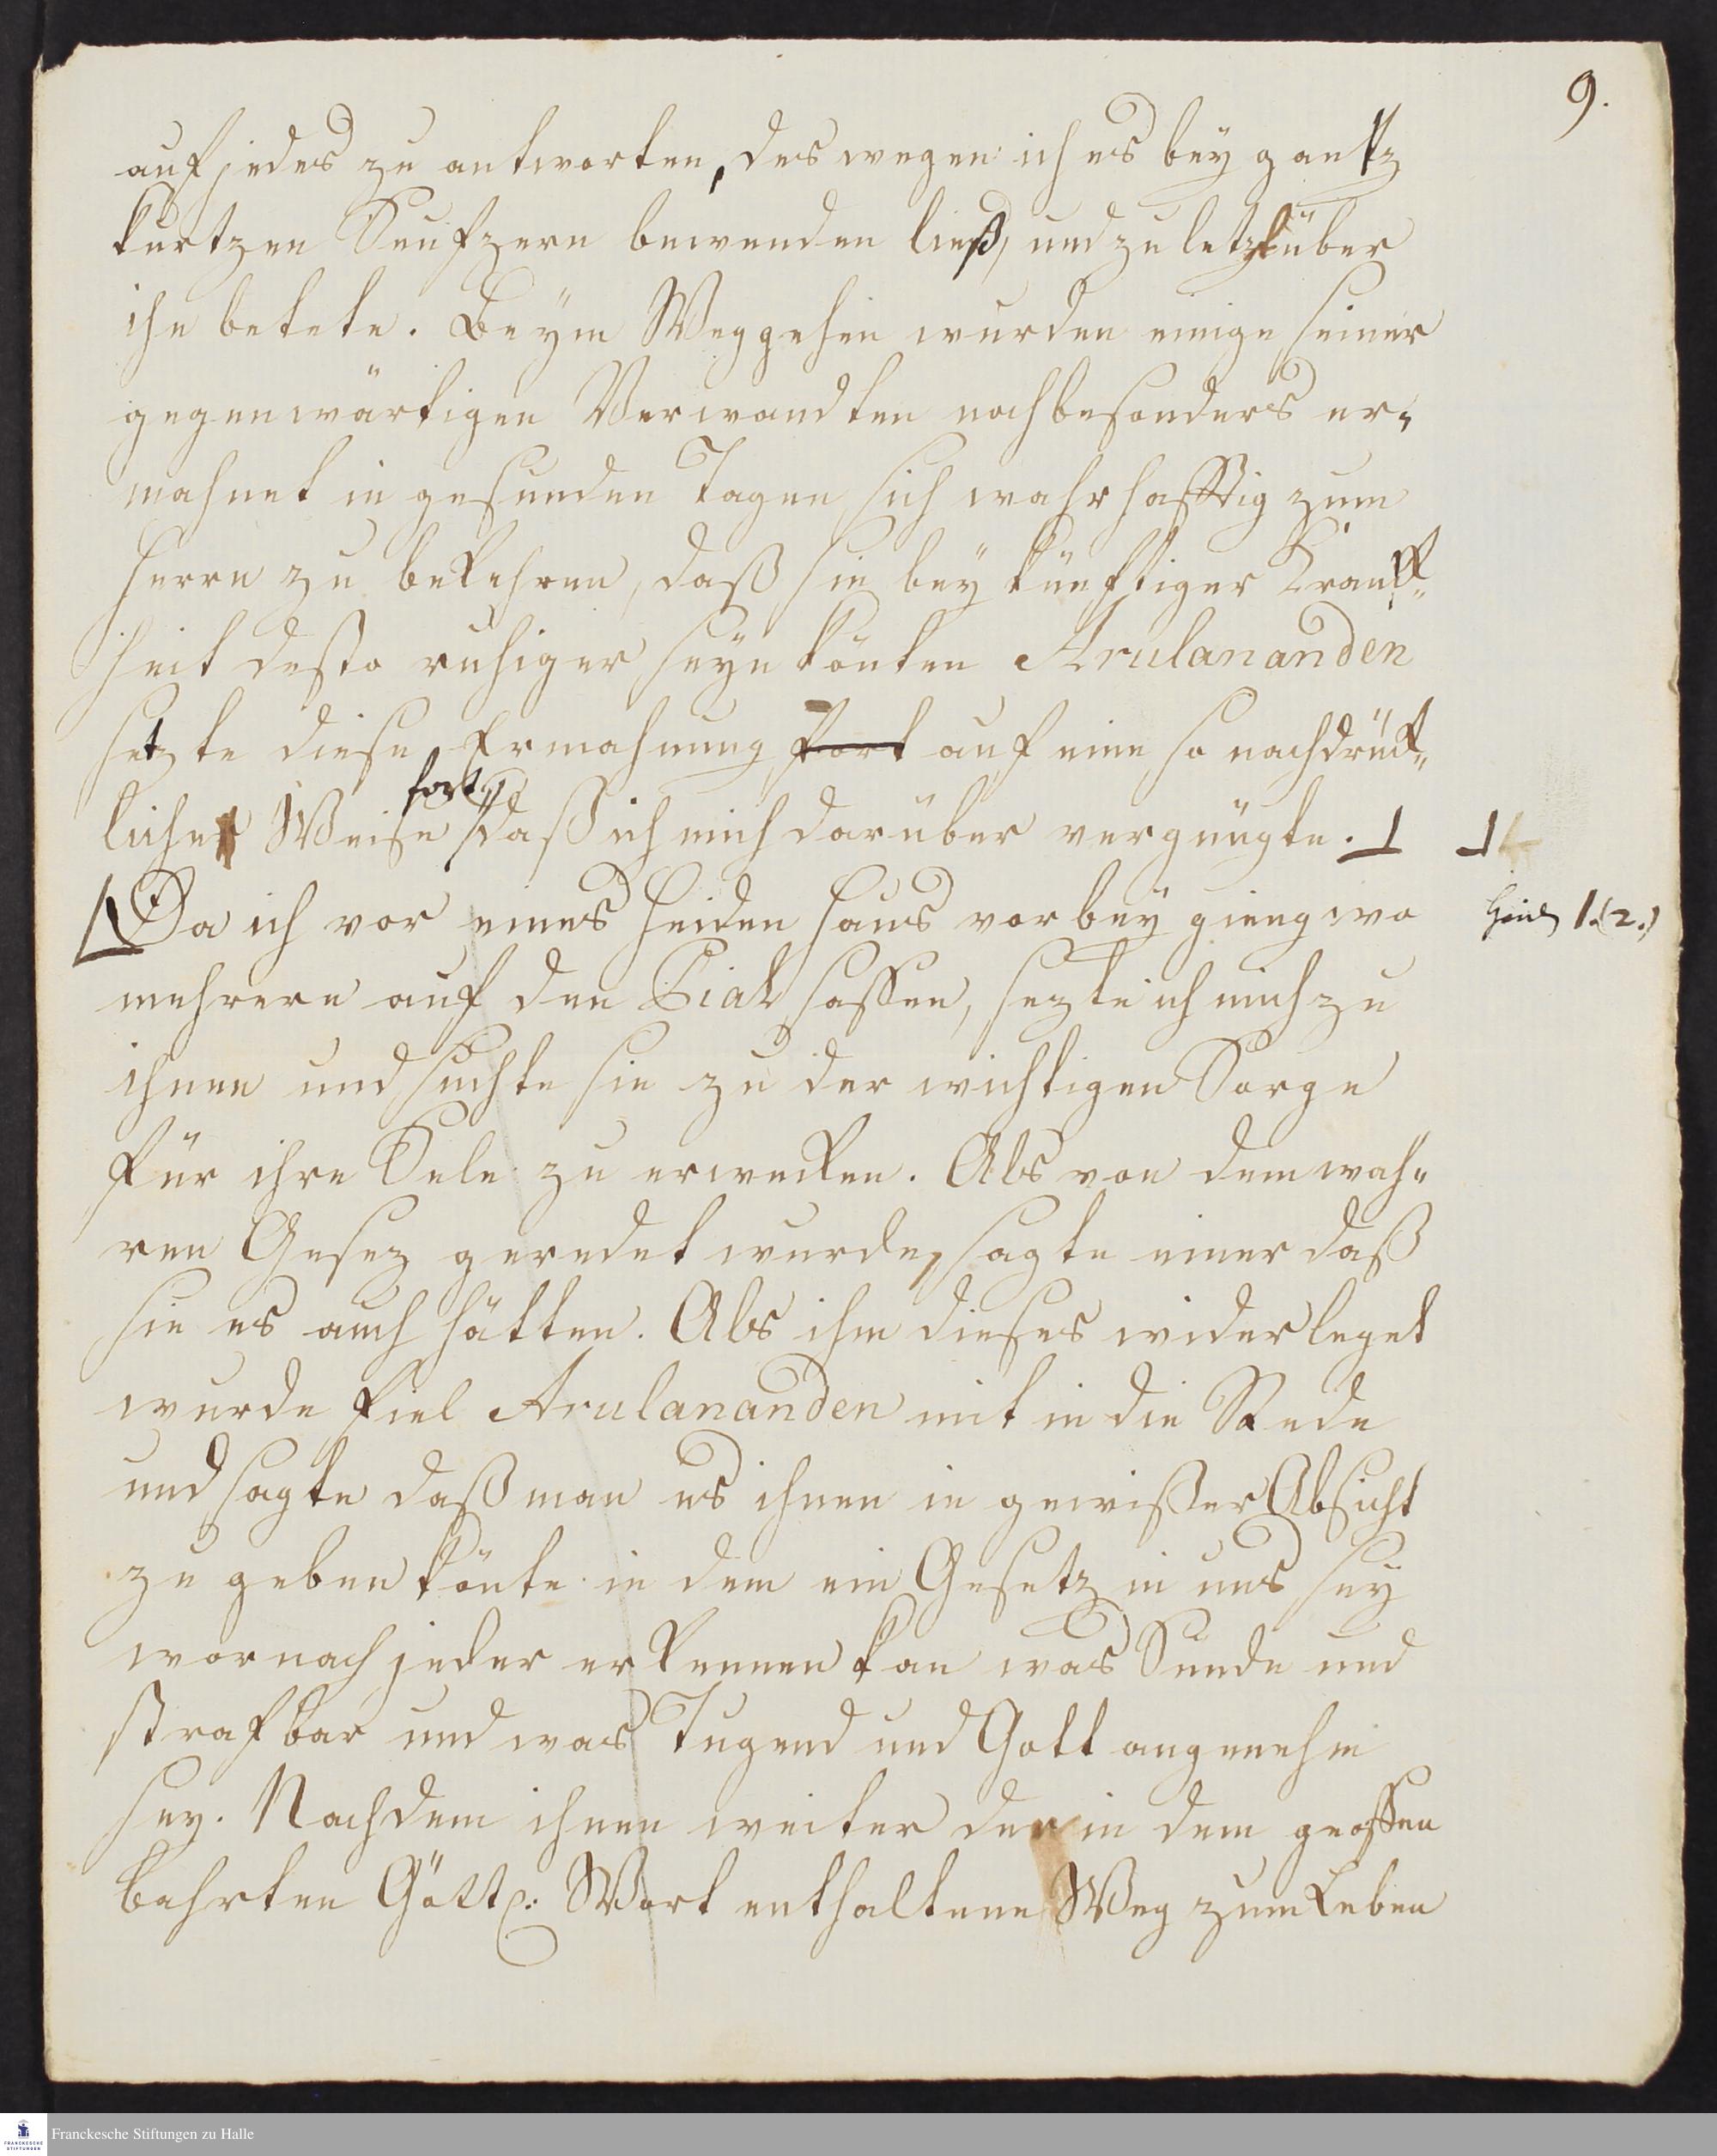 9.
auf jedes zu antworten, des wegen ich es bey gantz
kurtzen Seufzern bewenden ließ, und zu letzt über
ihn betete. Beym Weggehen wurden einige seiner
gegenwärtigen Verwandten noch besonders er-
mahnet in gesunden Tagen sich wahrhafftig zum
Herrn zu bekehren, daß sie bey künftiger Kranck-
heit desto ruhiger seyn könten Arulananden
setzte diese Ermahnung fort auf eine so nachdrück-
fort,
liche Weise daß ich mich darüber vergnügte.
Da ich vor eines Heiden Haus vorbey gieng wo
Heid 1.(2.)
mehrere auf den Pial sassen, sezte ich mich zu
ihnen und suchte sie zu der wichtigen Sorge
für ihre Sele zu erwecken. Als von dem wah-
ren Gesez geredet wurde, sagte einer daß
sie es auch hätten. Als ihm dieses widerleget
wurde fiel Arulananden mit in die Rede
und sagte daß man es ihnen in gewißer Absicht
zu geben könte in dem ein Gesetz in uns sey
wornach jeder erkennen kan was Sünde und
strafbar und was Tugend und Gott angenehm
sey. Nachdem ihnen weiter der in dem geoffen
bahrten Göttl: Wort enthaltene Weg zum Leben
Franckesche Stiftungen zu Halle